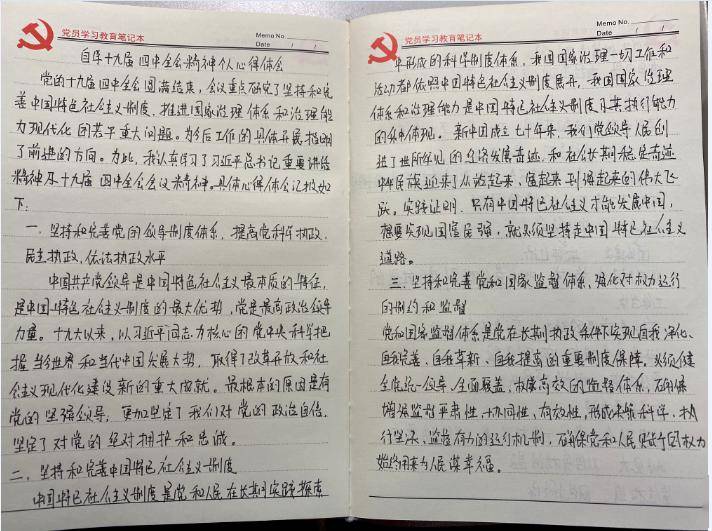 党员学习教育笔记本
Memo No.
Date / /
自学十九届四中全会精神个人心得体会
党的十九届四中全会圆满结束，会议重点研究了坚持和完
善中国特色社会主义制度、推进国家治理体系和治理能
力现代化的若干重大问题。为今后工作的具体开展指明
了前进的方向。为此，我认真学习了习近平总书记重要讲话
精神及十九届四中全会会议精神。具体心得体会汇报如
下：
一、坚持和完善党的领导制度体系，提高党科学执政、
民主执政、依法执政水平
中国共产党领导是中国特色社会主义最本质的特征，
是中国特色社会主义制度的最大优势，党是最高政治领导
力量。十九大以来，以习近平同志为核心的党中央科学把
握当今世界和当代中国发展大势，取得了改革开放和社
会主义现代化建设新的重大成就。最根本的原因是有
党的坚强领导，更加坚定了我们对党的政治自信，
坚定了对党的绝对拥护和忠诚。
二、坚持和完善中国特色社会主义制度
中国特色社会主义制度是党和人民在长期实践探索
党员学习教育笔记本
Memo No.
Date / /
中形成的科学制度体系，我国国家治理一切工作和
活动都依照中国特色社会主义制度展开，我国国家治理
体系和治理能力是中国特色社会主义制度及其执行能力
的集中体现。新中国成立七十年来，我们党领导人民创
造了世所罕见的经济发展奇迹和社会长期稳定奇迹
中华民族迎来了从站起来、富起来到强起来的伟大飞
跃。实践证明，只有中国特色社会主义才能发展中国，
想要实现国富民强，就必须坚持走中国特色社会主义
道路。
三、坚持和完善党和国家监督体系，强化对权力运行
的制约和监督
党和国家监督体系是党在长期执政条件下实现自我净化、
自我完善、自我革新、自我提高的重要制度保障。必须健
全党统一领导、全面覆盖、权威高效的监督体系，
增强监督严肃性、协同性、有效性，形成决策科学、执
行坚决、监督有力的运行机制，确保党和人民赋予的权力
始终用来为人民谋幸福。